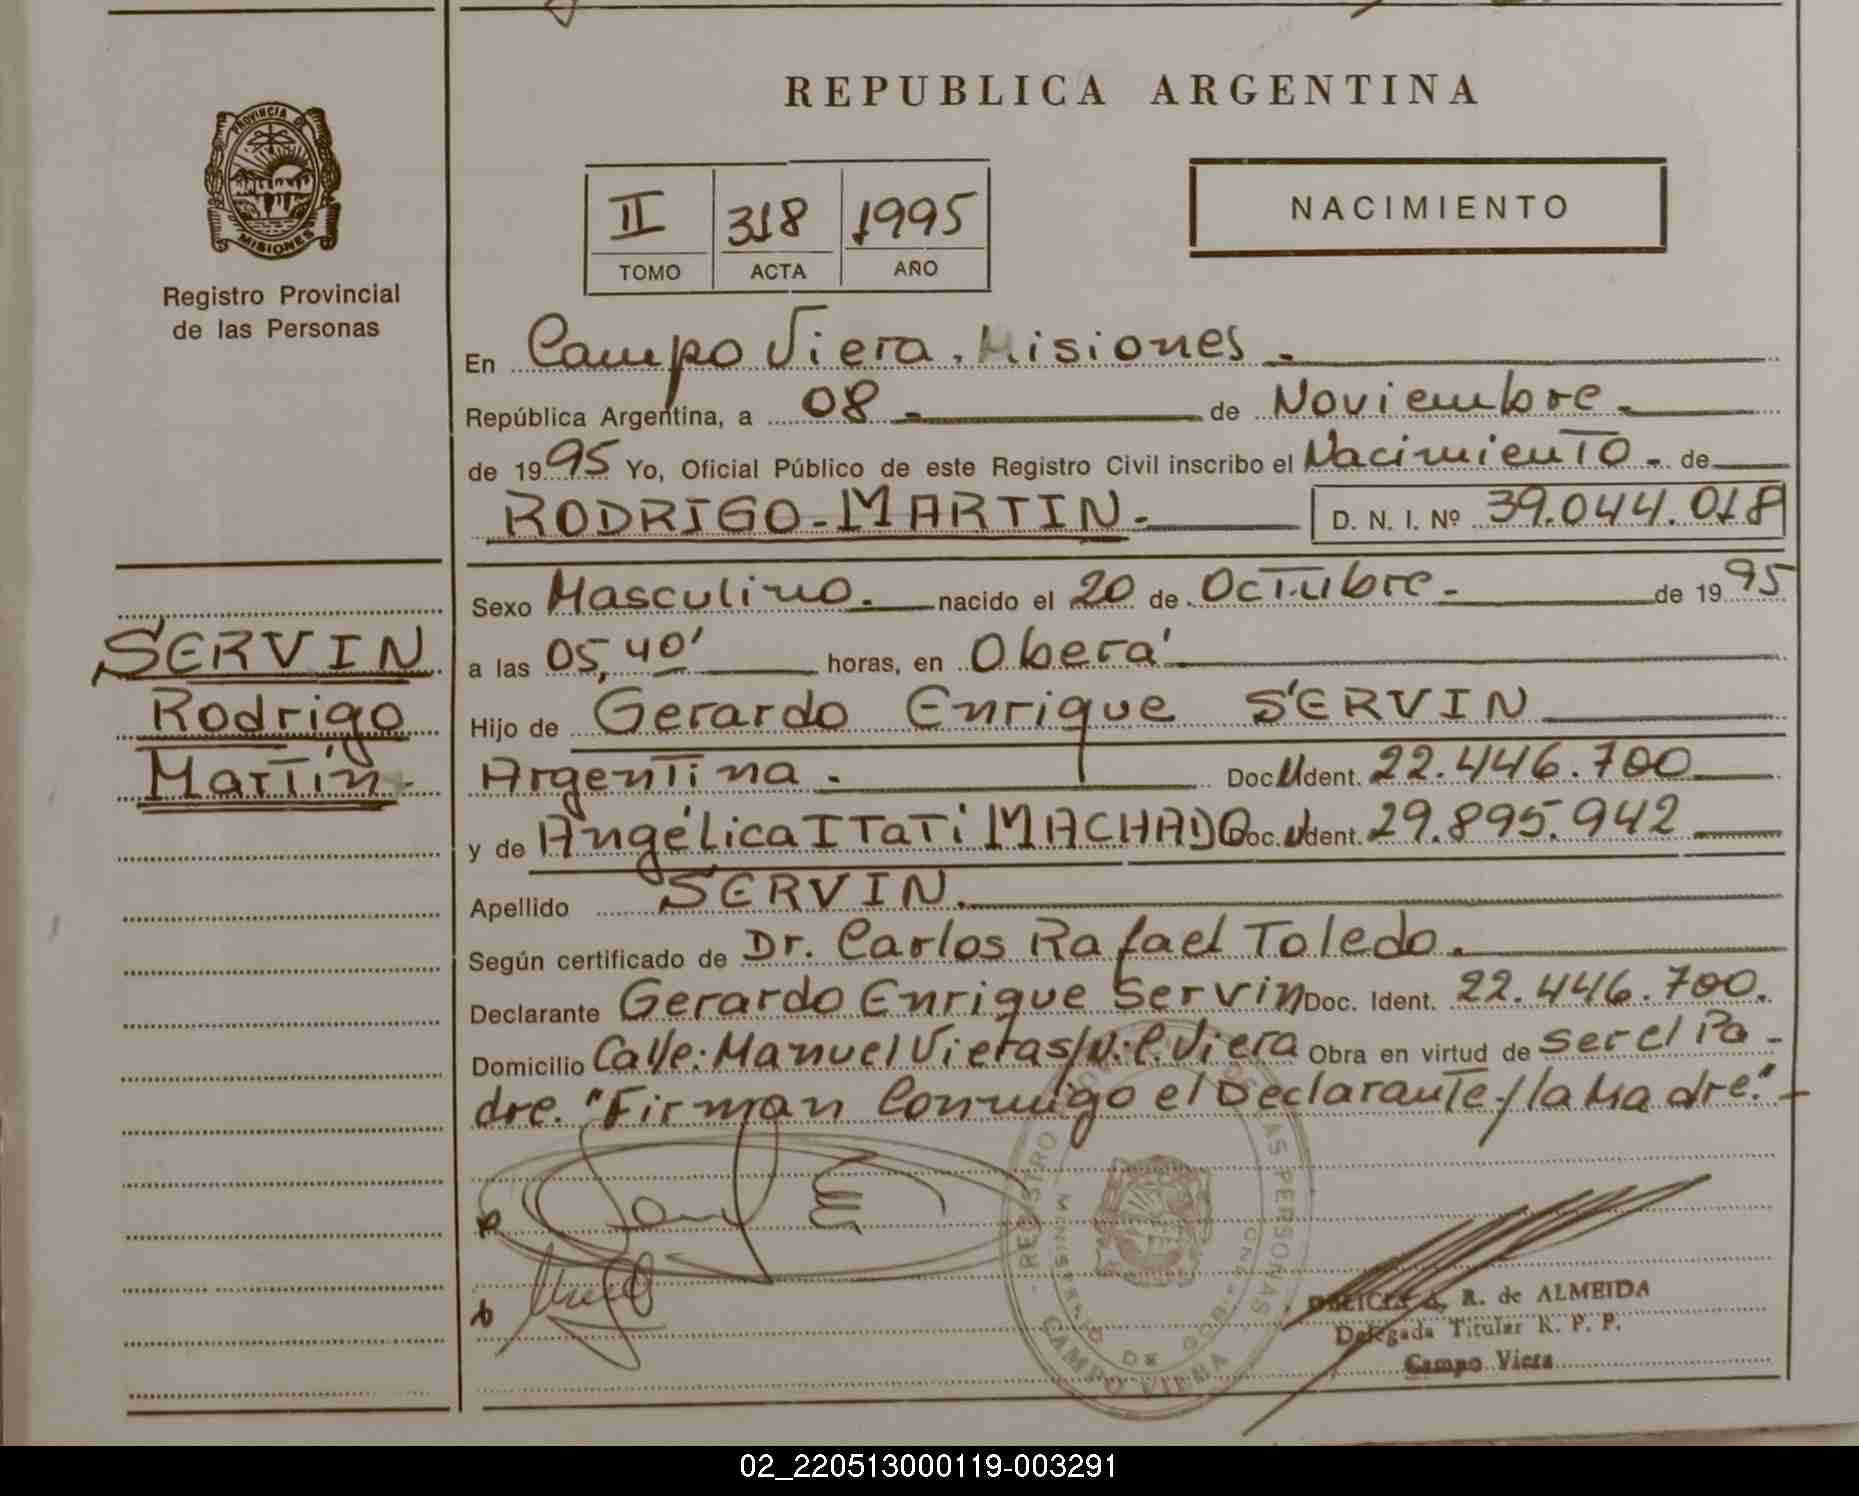 REPUBLICA ARGENTINA
PROVINCIA DE
MISIONES
Registro Provincial
de las Personas
II 318 1995
TOMO ACTA AÑO
NACIMIENTO
En Campo Viera. Misiones.
República Argentina, a 08 de Noviembre
de 1995 Yo, Oficial Público de este Registro Civil inscribo el Nacimiento de
RODRIGO-MARTIN.- D. N. I. Nº 39.044.018
SERVIN
Rodrigo
Martín
Sexo Masculino. nacido el 20 de Octubre. de 1995
a las 05,40' horas, en Oberá
Hijo de Gerardo Enrique SERVIN
Argentina. Doc. Ident. 22.446.700
y de Angélica ITaTi MACHADO Doc. Ident. 29.895.942
Apellido SERVIN.
Según certificado de Dr. Carlos Rafael Toledo.
Declarante Gerardo Enrique Servin Doc. Ident. 22.446.700.
Domicilio Calle: Manuel Vieras/N.: C. Viera Obra en virtud de ser el Pa-
dre. "Firman Conmigo el Declarante./la Madre."-
REGISTRO DE LAS PERSONAS
MINISTERIO DE GOB.
CAMPO VIERA
R. de ALMEIDA
Delegada Titular R. P. P.
Campo Viera
02_220513000119-003291